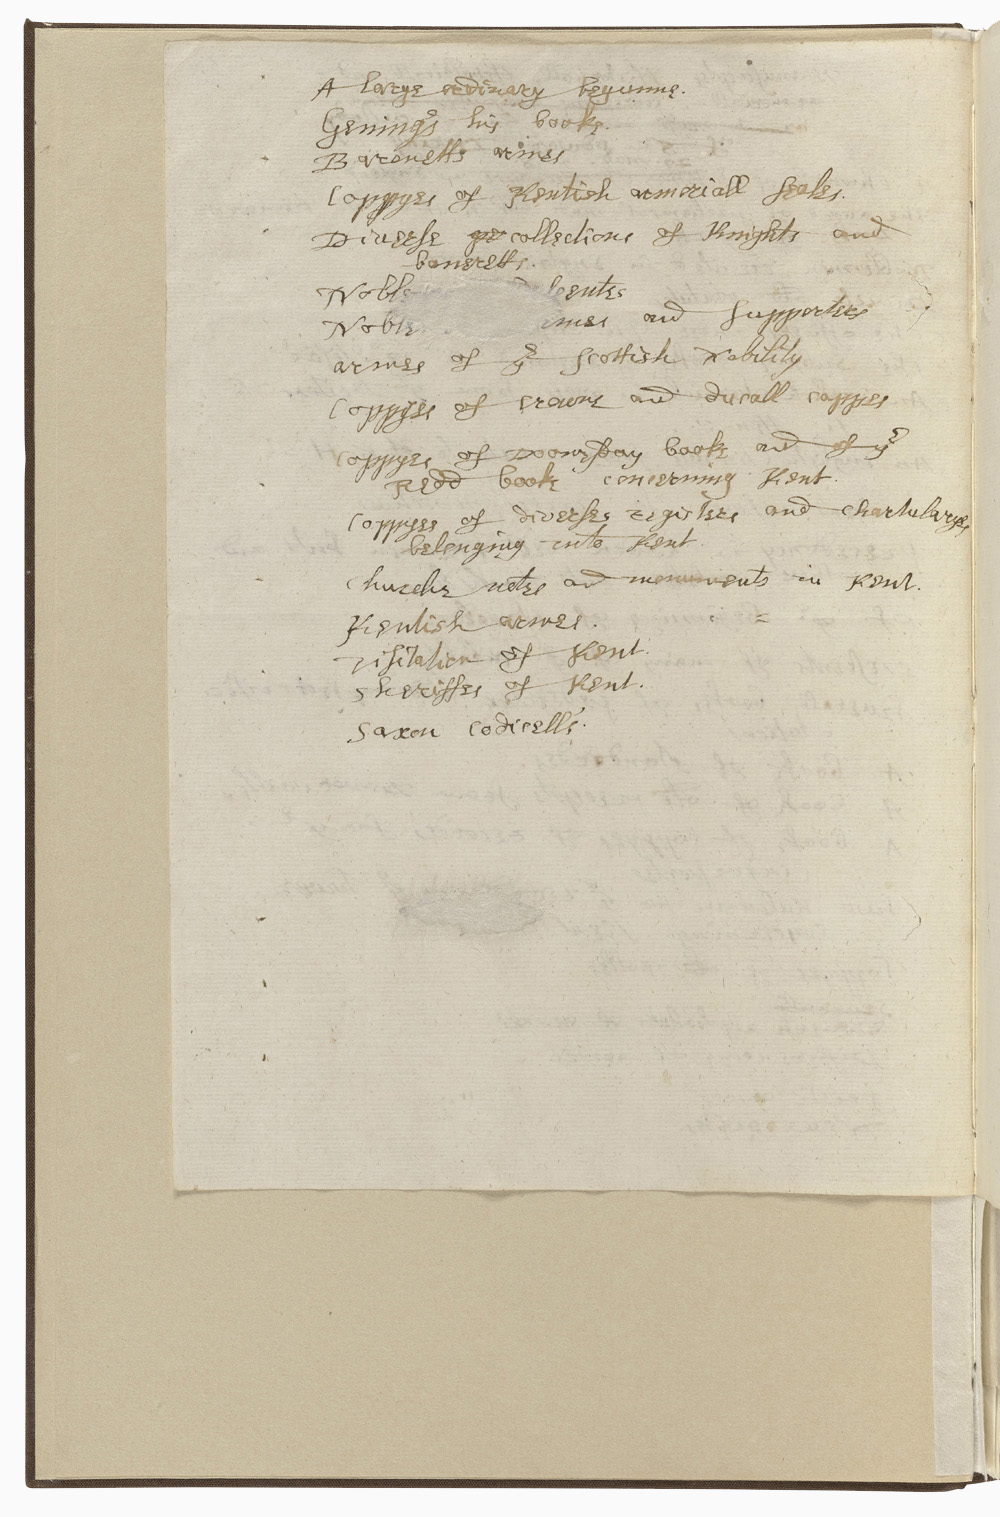 A large ordinary begunne.
Gening's his booke.
Baronetts armes
Coppyes of Kentish armoriall seales.
Diverse collections of Knights and
baneretts.
Noble
Noble and Supporters
armes of ye Scottish Nobility
Coppyes of crowne and ducall cappes
Coppyes of Doomsday booke and of ye
Redd booke concerning Kent.
Coppyes of diverses registers and chartularyes
belonging into Kent.
Churche notes and monuments in Kent.
Kentish armes.
visitation of Kent.
Sheriffes of Kent.
Saxon codicells.